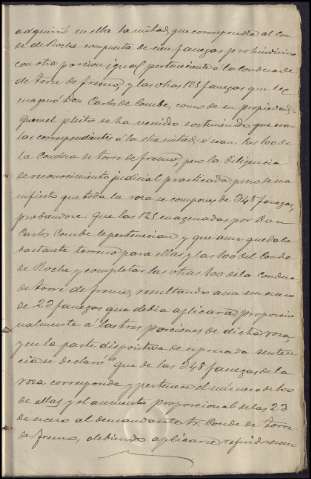 adquirió en ella la mitad, que correspondía al con
de de Rocha compuesta de cien fanegas por indiviso
con otra porcion igual perteneciente a la Condesa de
de Torre de fresno, y las otras 125 fanegas que se
enagenó Don Carlos Coube, como de su propiedad,
que en el pleito se ha venido sosteniendo, que eran
las correspondientes á la otra mitad, ó sean, las 100 de
la Condesa de torre de fresno, pero la diligencia
de reconocimiento judicial practicada puso de ma
nifiesto que toda la rosa se compone de 348 fanegas,
probandose que las 125 enagenadas por Don
Carlos Coube le pertenecian y que aun quedaba
bastante terreno para ellas y las 100 del Conde
de Rocha y completar las otras 100 de la Condesa
de torre de fresno, resultando aun un exceso
de 23 fanegas que debia aplicarse proporcio
nalmente a las tres porciones de dicha rosa,
y en la parte dispositiva de espresada senten
cia se declaró "que de las 348 fanegas de la
rosa corresponde y pertenece el número de 100
de ellas y el aumento proporcional de las 23
de exceso al demandante Sr. Conde de Torre
de fresno, debiendo aplicarse